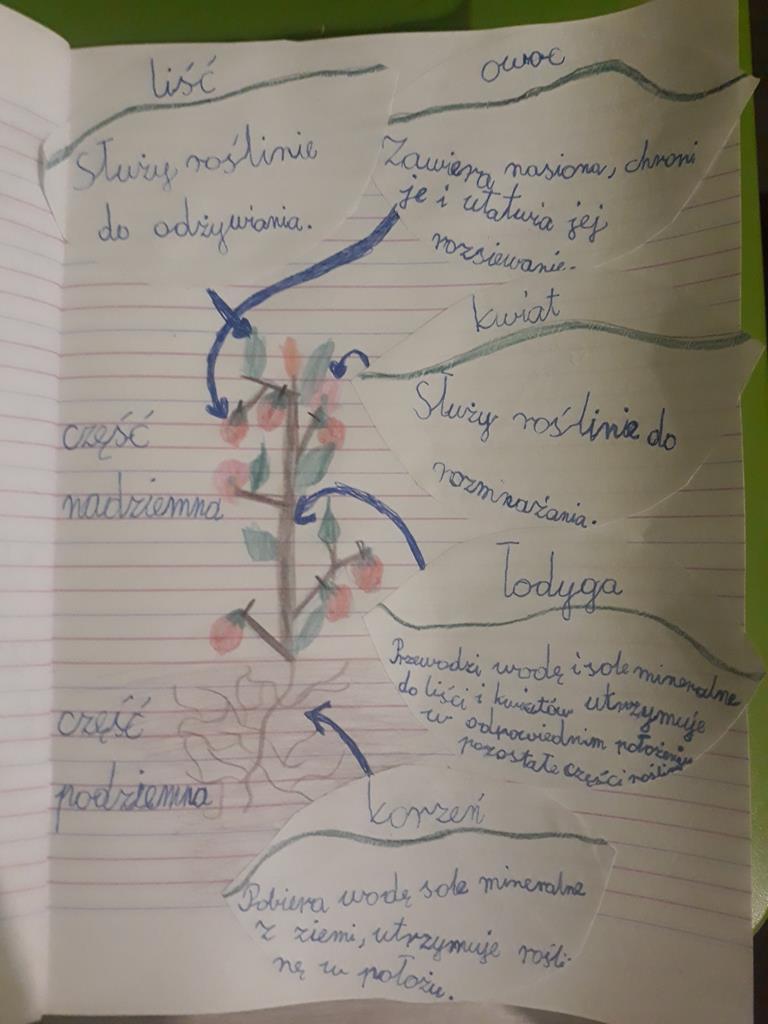 liść
Służy roślinie
do odżywiania.
owoc
Zawiera nasiona, chroni
je i ułatwia jej
rozsiewanie.
kwiat
Służy roślinie do
rozmnażania.
część
nadziemna
łodyga
Przewodzi wodę i sole mineralne
do liści i kwiatów utrzymuje
w odpowiednim położeniu
pozostałe części rośliny
część
podziemna
korzeń
Pobiera wodę sole mineralne
z ziemi, utrzymuje rośli-
nę w położu.